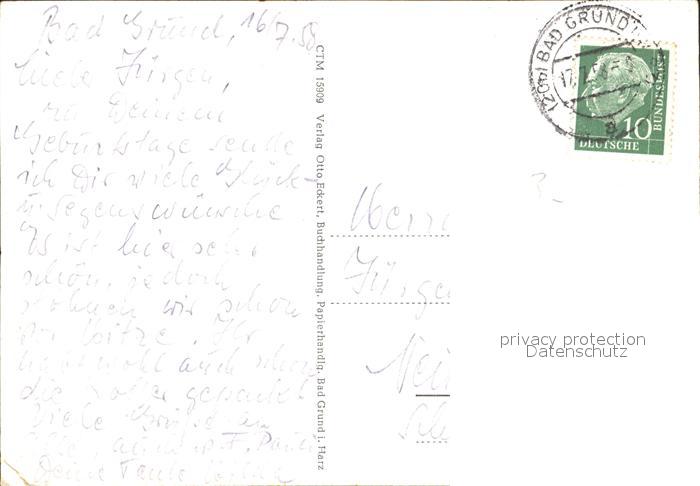 Bad Grund, 16/7.58
Liebe Jürgen,
zu Deinem
Geburtstage sende
ich Dir viele Glück-
u. Segenswünsche
Es ist hier sehr
schön, jedoch
stöhnen wir schon
vor Hitze. Ihr
wohl auch schon
die Koffer gepackt
Viele Grüße an
alle, auch
Deine Tante
CTM 15909 Verlag Otto Eckert, Buchhandlung, Papierhandlg. Bad Grund i. Harz
(20b) BAD GRUND
17.7.58
a
10
DEUTSCHE
BUNDESPOST
Herrn
Jürgen
privacy protection
Datenschutz